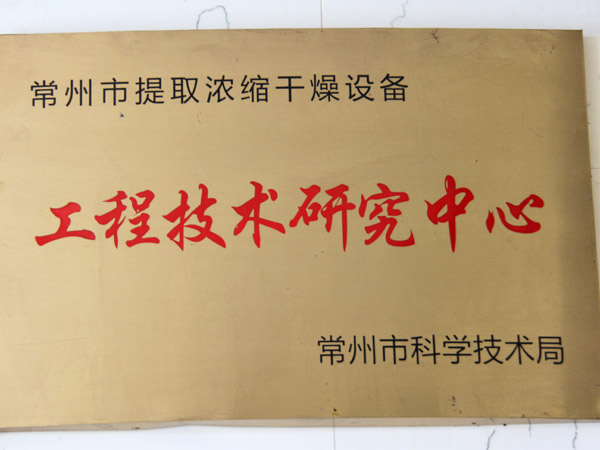 常州市提取浓缩干燥设备
工程技术研究中心
常州市科学技术局